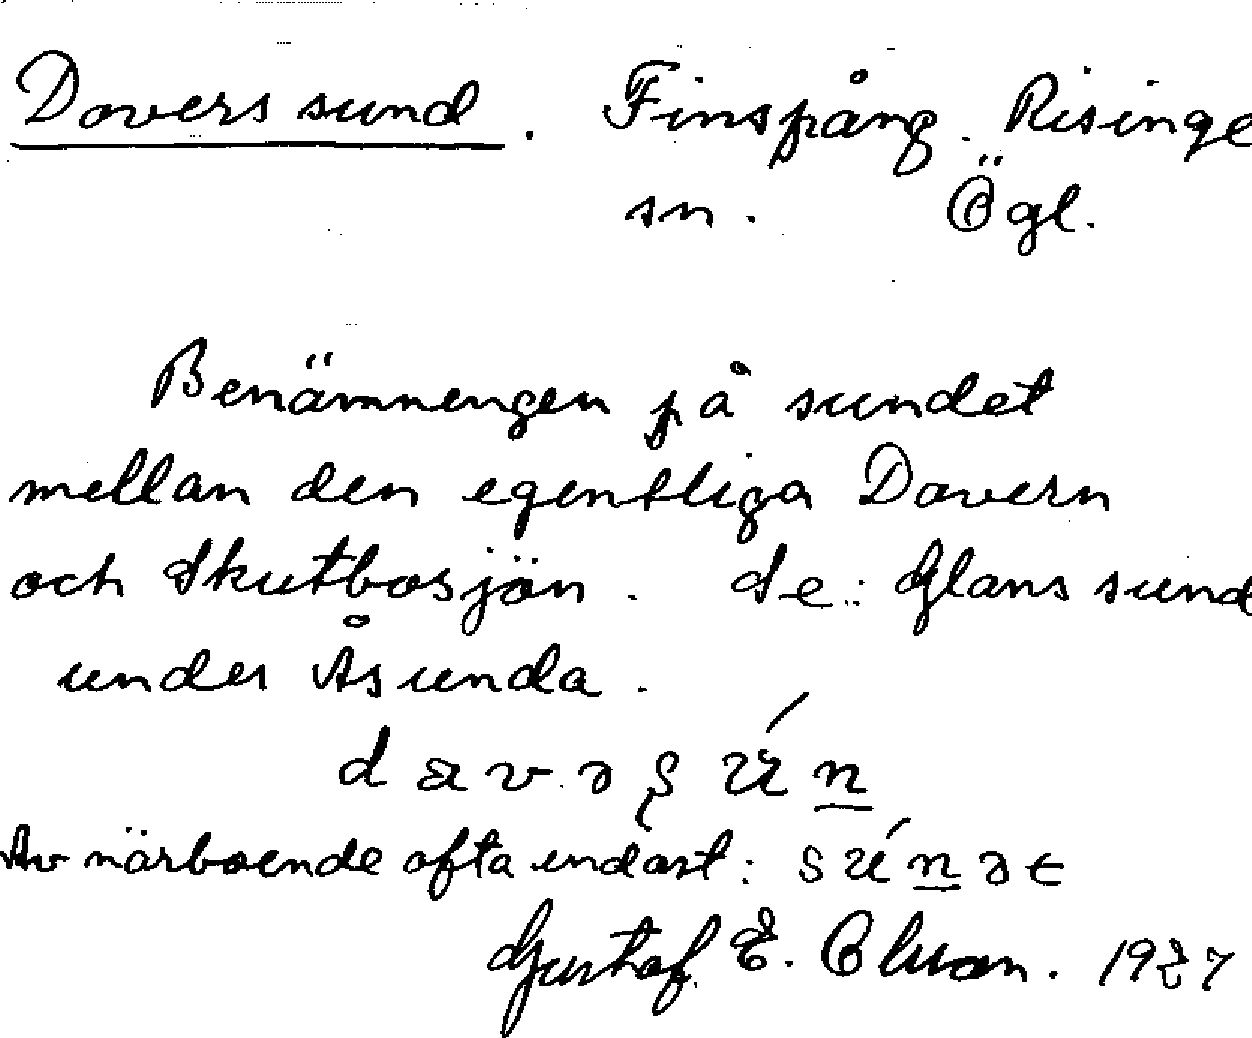 Doverssund. Finspång. Risinge
sn. Ögl.
Benämningen på sundet
mellan den egentliga Dovern
och Skutbosjön. Se: Glanssund
under Åsunda.
Av närboende ofta endast:
Gustaf E. 1927